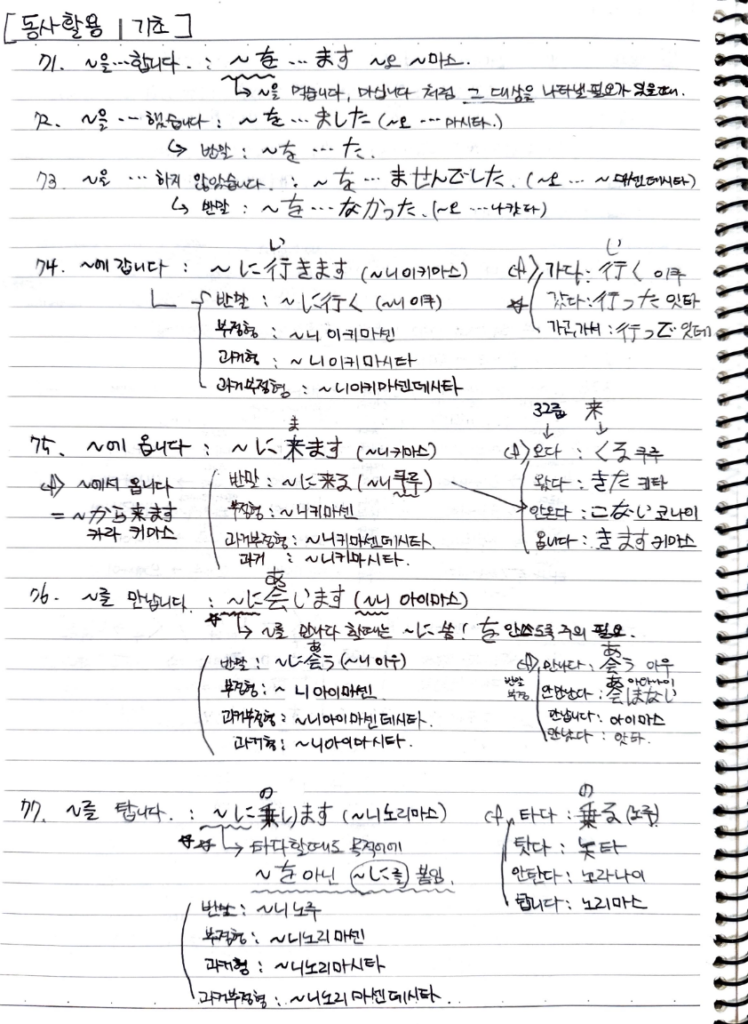 [동사활용 | 기초]
71. ~을…합니다. : ~を…ます ~오 ~마스.
↳ ~을 먹습니다, 마십니다 처럼 그 대상을 나타낼 필요가 있을때.
72. ~을…했습니다 : ~を…ました (~오 …마시타.)
↳ 반말 : ~を…た.
73. ~을 …하지 않았습니다. : ~を…ませんでした. (~오 … ~마센데시타)
↳ 반말 : ~を…なかった. (~오 …나캇타)
い
74. ~에 갑니다 : ~に行きます (~니 이키마스)
반말 : ~に行く (~니 이쿠)
부정형 : ~니 이키마센
과거형 : ~니 이키마시타
과거부정형 : ~니이키마센데시타
い
가다 : 行く 이쿠
갔다 : 行った 잇타
가고,가서 : 行って 잇테
3그룹 来
ま
75. ~에 옵니다 : ~に来ます (~니키마스)
~에서 옵니다
= ~から来ます
카라 키마스
반말 : ~に来る (~니 쿠루)
부정형 : ~니키마센
과거부정형 : ~니키마센데시타.
과거 : ~니키마시타.
오다 : くる 쿠루
왔다 : きた 키타
안온다 : こない 코나이
옵니다 : きます 키마스
あ
76. ~를 만납니다. : ~に会います (~니 아이마스)
↳ ~를 만나다 할때는 ~に 씀! を 안쓰도록 주의 필요.
あ
반말 : ~に会う (~니 아우)
부정형 : ~니아이마센.
과거부정형 : ~니아이마센데시타.
과거형 : ~니아이마시타.
あ
만나다 : 会う 아우
あ
반말부정 안만난다 : 会はない
만납니다 : 아이마스
만났다 : 앗타.
の
77. ~를 탑니다. : ~に乗ります (~니노리마스)
↳ 타다할때도 목적어에
~を 아닌 ~に를 붙임.
반말 : ~니노루
부정형 : ~니노리마센
과거형 : ~니노리마시타
과거부정형 : ~니노리마센데시타.
の
타다 : 乗る (노루)
탓다 : 놋타
안탄다 : 노라나이
탑니다 : 노리마스